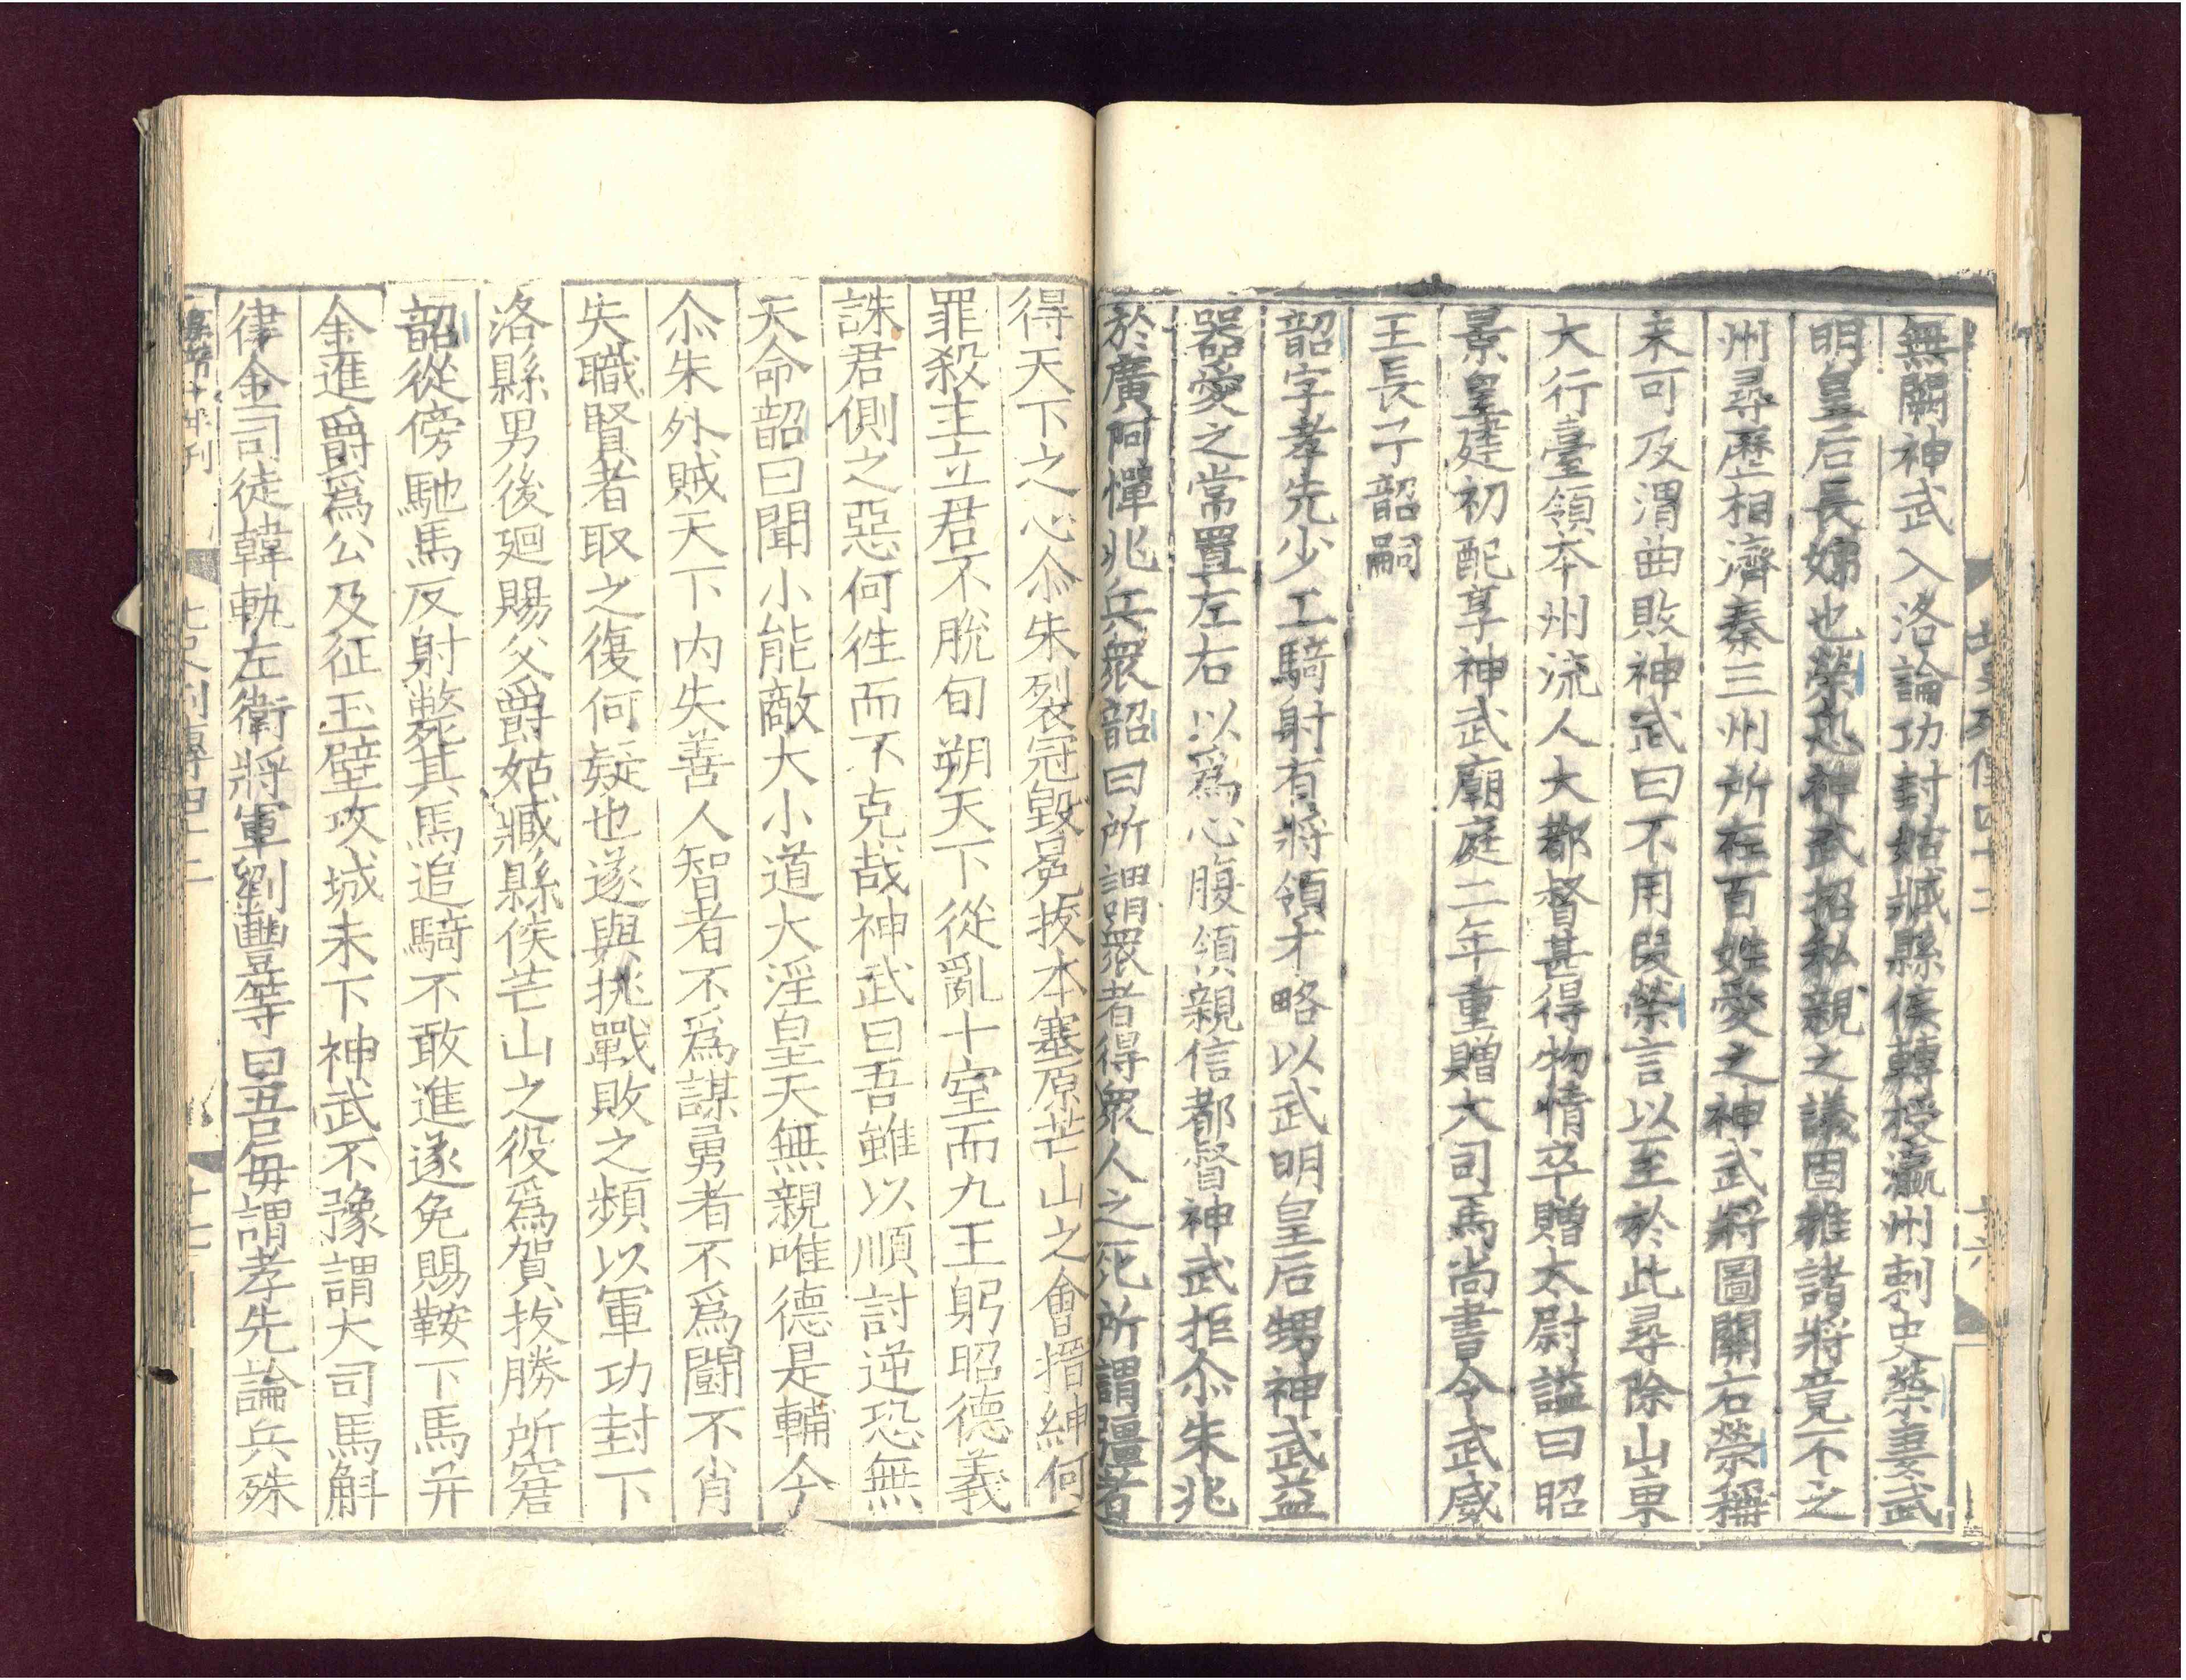 北史列傳四十二
十六
無闕神武入洛論功封姑臧縣侯轉授瀛州刺史榮妻武
明皇后長姊也榮恐神武招私親之議固推諸將竟不之
州尋歷相濟秦三州所在百姓愛之神武將圖關右榮稱
未可及渭曲敗神武曰不用段榮言以至於此尋除山東
大行臺領本州流人大都督甚得物情卒贈太尉謚曰昭
景皇建初配享神武廟庭二年重贈大司馬尚書令武威
王長子韶嗣
韶字孝先少工騎射有將領才略以武明皇后甥神武益
器愛之常置左右以爲心腹領親信都督神武拒尒朱兆
於廣阿憚兆兵衆韶曰所謂衆者得衆人之死所謂彊者
得天下之心尒朱裂冠毀冕拔本塞原芒山之會搢紳何
罪殺主立君不脫旬朔天下從亂十室而九王躬昭德義
誅君側之惡何往而不克哉神武曰吾雖以順討逆恐無
天命韶曰聞小能敵大小道大淫皇天無親唯德是輔今
尒朱外賊天下內失善人智者不爲謀勇者不爲鬪不肖
失職賢者取之復何疑也遂與挑戰敗之頻以軍功封下
洛縣男後廻賜父爵姑臧縣侯芒山之役爲賀拔勝所窘
韶從傍馳馬反射斃其馬追騎不敢進遂免賜鞍下馬并
金進爵爲公及征玉壁攻城未下神武不豫謂大司馬斛
律金司徒韓軌左衛將軍劉豐等曰吾每謂孝先論兵殊
北史列傳四十二
十七